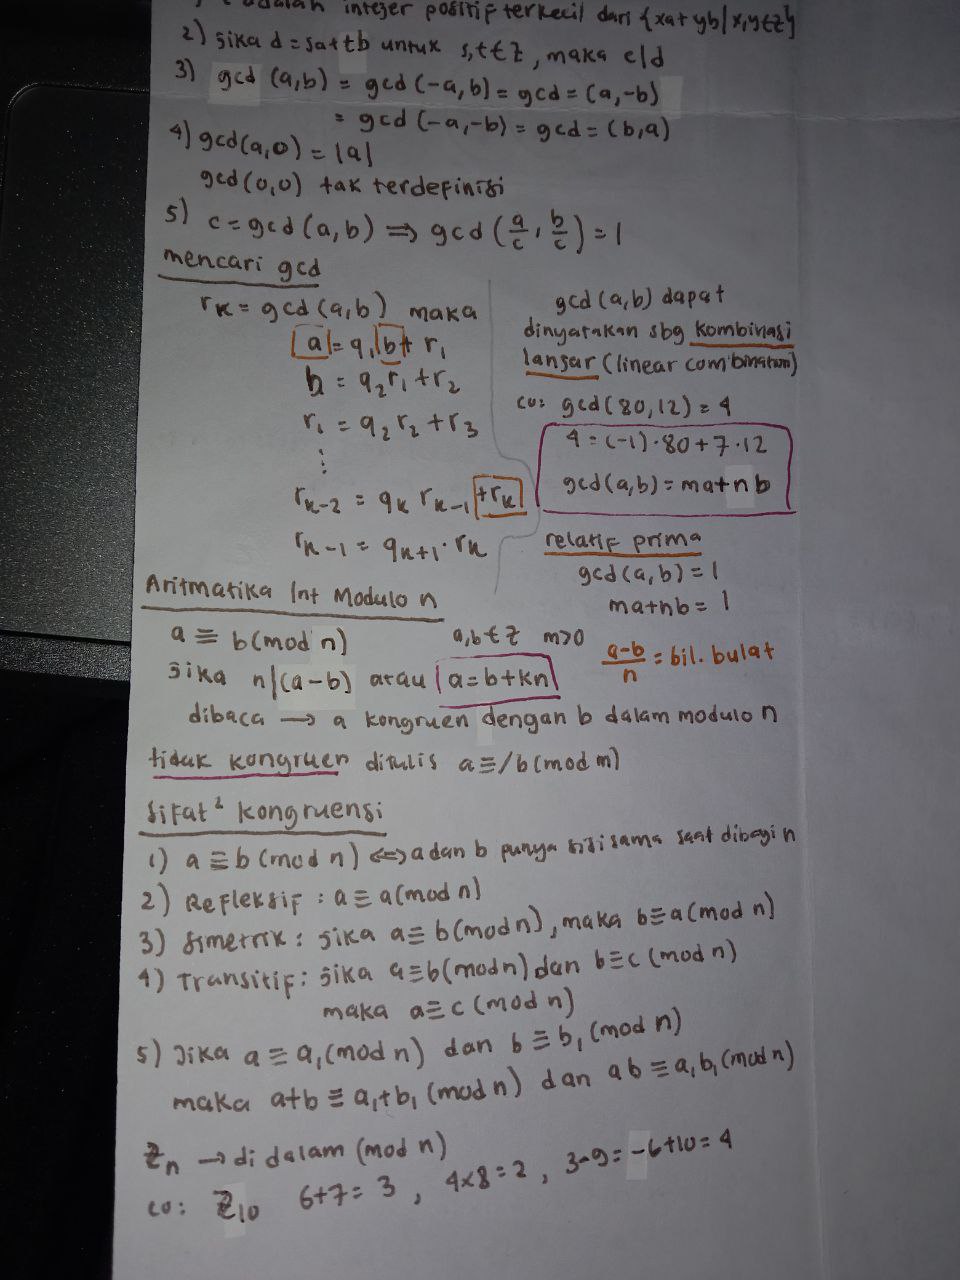 adalah integer positif terkecil dari {xa+yb|x,y∈Z}
2) Jika d = sa+tb untuk s,t∈Z, maka c|d
3) gcd (a,b) = gcd(-a,b) = gcd = (a,-b)
= gcd(-a,-b) = gcd = (b,a)
4) gcd(a,0) = |a|
gcd(0,0) tak terdefinisi
5) c = gcd(a,b) ⇒ gcd(a/c, b/c) = 1
mencari gcd
rₖ = gcd(a,b) maka
a = q₁b + r₁
b = q₂r₁ + r₂
r₁ = q₂ r₂ + r₃
⋮
rₖ₋₂ = qₖ rₖ₋₁ + rₖ
rₖ₋₁ = qₖ₊₁ · rₖ
gcd(a,b) dapat
dinyatakan sbg kombinasi
lansar (linear combination)
co: gcd(80,12) = 4
4 = (-1)·80 + 7·12
gcd(a,b) = ma+nb
relatif prima
gcd(a,b) = 1
ma+nb = 1
Aritmatika Int Modulo n
a ≡ b(mod n) a,b∈Z m>0
Jika n|(a-b) atau a=b+kn
(a-b)/n = bil. bulat
dibaca → a kongruen dengan b dalam modulo n
tidak kongruen ditulis a≡/b(mod m)
Sifat² kongruensi
1) a ≡ b (mod n) ⇔ a dan b punya sisi sama saat dibagi n
2) Refleksif : a ≡ a(mod n)
3) Simetrik : Jika a≡ b(mod n), maka b≡a(mod n)
4) Transitif : Jika a≡b(mod n) dan b≡c (mod n)
maka a≡c (mod n)
5) Jika a ≡ a₁(mod n) dan b ≡ b₁(mod n)
maka a+b ≡ a₁+b₁ (mod n) dan ab ≡ a₁b₁(mod n)
Zₙ → di dalam (mod n)
co: Z₁₀ 6+7=3, 4x8=2, 3-9=-6+10=4